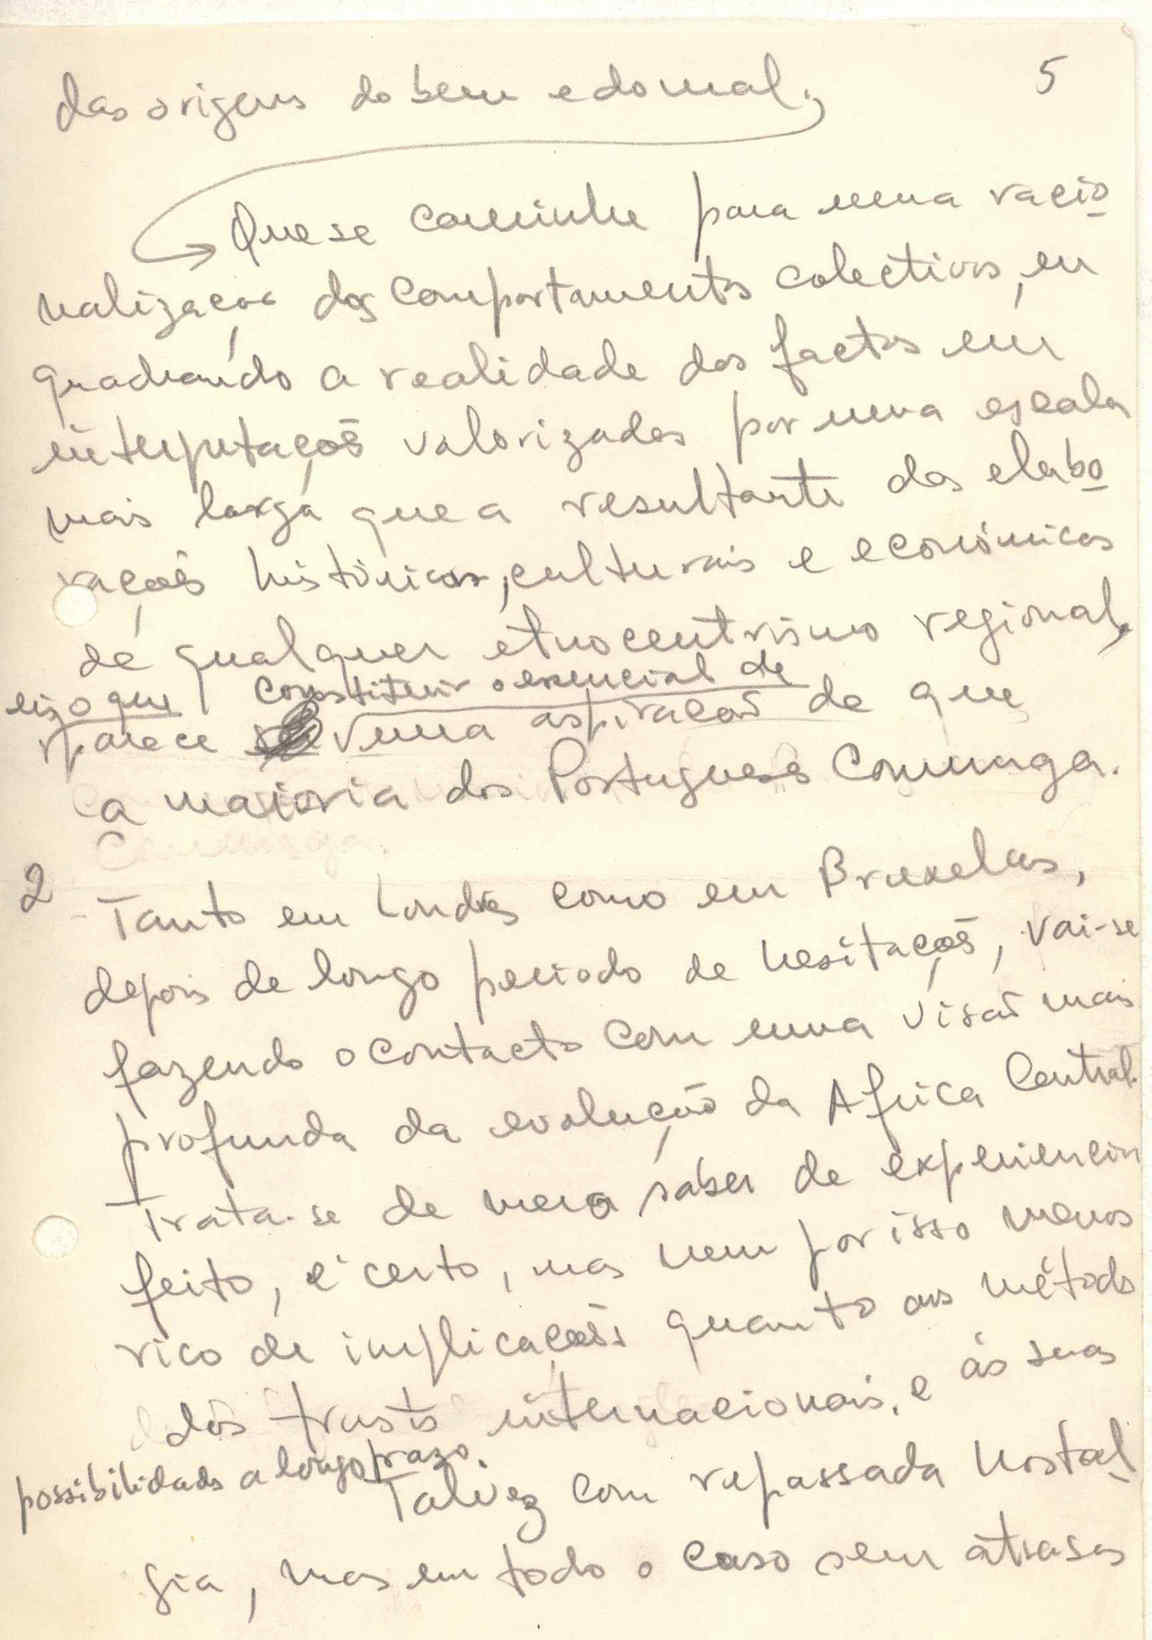 5
das origens do bem e do mal.
Que se caminhe para uma racio
nalização dos comportamentos colectivos, en
quadrando a realidade dos factos em
interpretações valorizadas por uma escala
mais larga que a resultante das elabo
rações históricas, culturais e económicas
de qualquer etnocentrismo regional,
eis o que constituir o essencial de
parece uma aspiração de que
a maioria dos Portugueses comunga.
2 Tanto em Londres como em Bruxelas,
depois de longo periodo de hesitações, vai-se
fazendo o contacto com uma visão mais
profunda da evolução da Africa Central.
Trata-se de mero saber de experiencia
feito, é certo, mas nem por isso menos
rico de implicações quanto aos métodos
dos trusts internacionais, e ás suas
possibilidades a longo prazo.
Talvez com repassada nostal
gia, mas em todo o caso sem atrasos